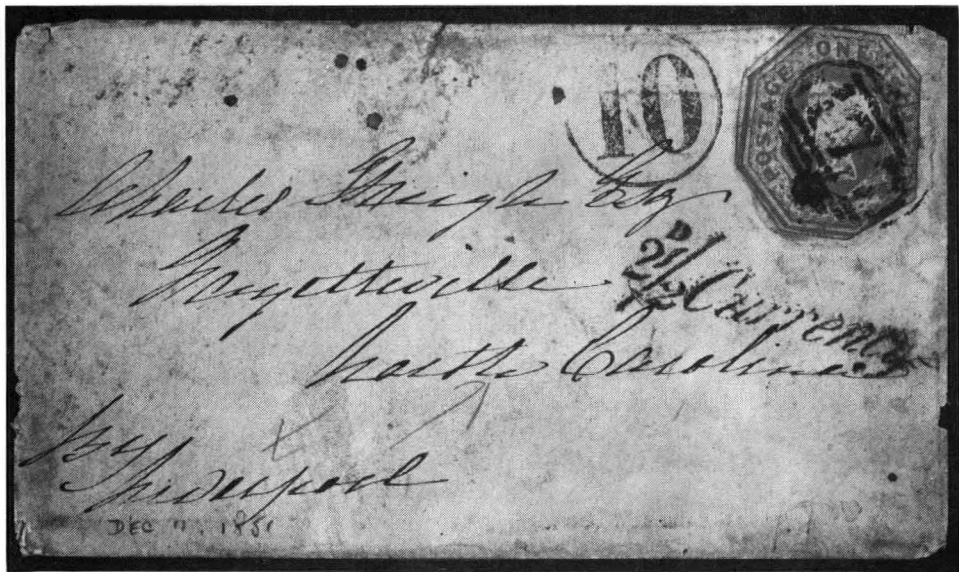 10
POSTAGE ONE
Charles Esq
Fayetteville
2½D Currency
North Carolina
by
Liverpool
DEC 11. 1851